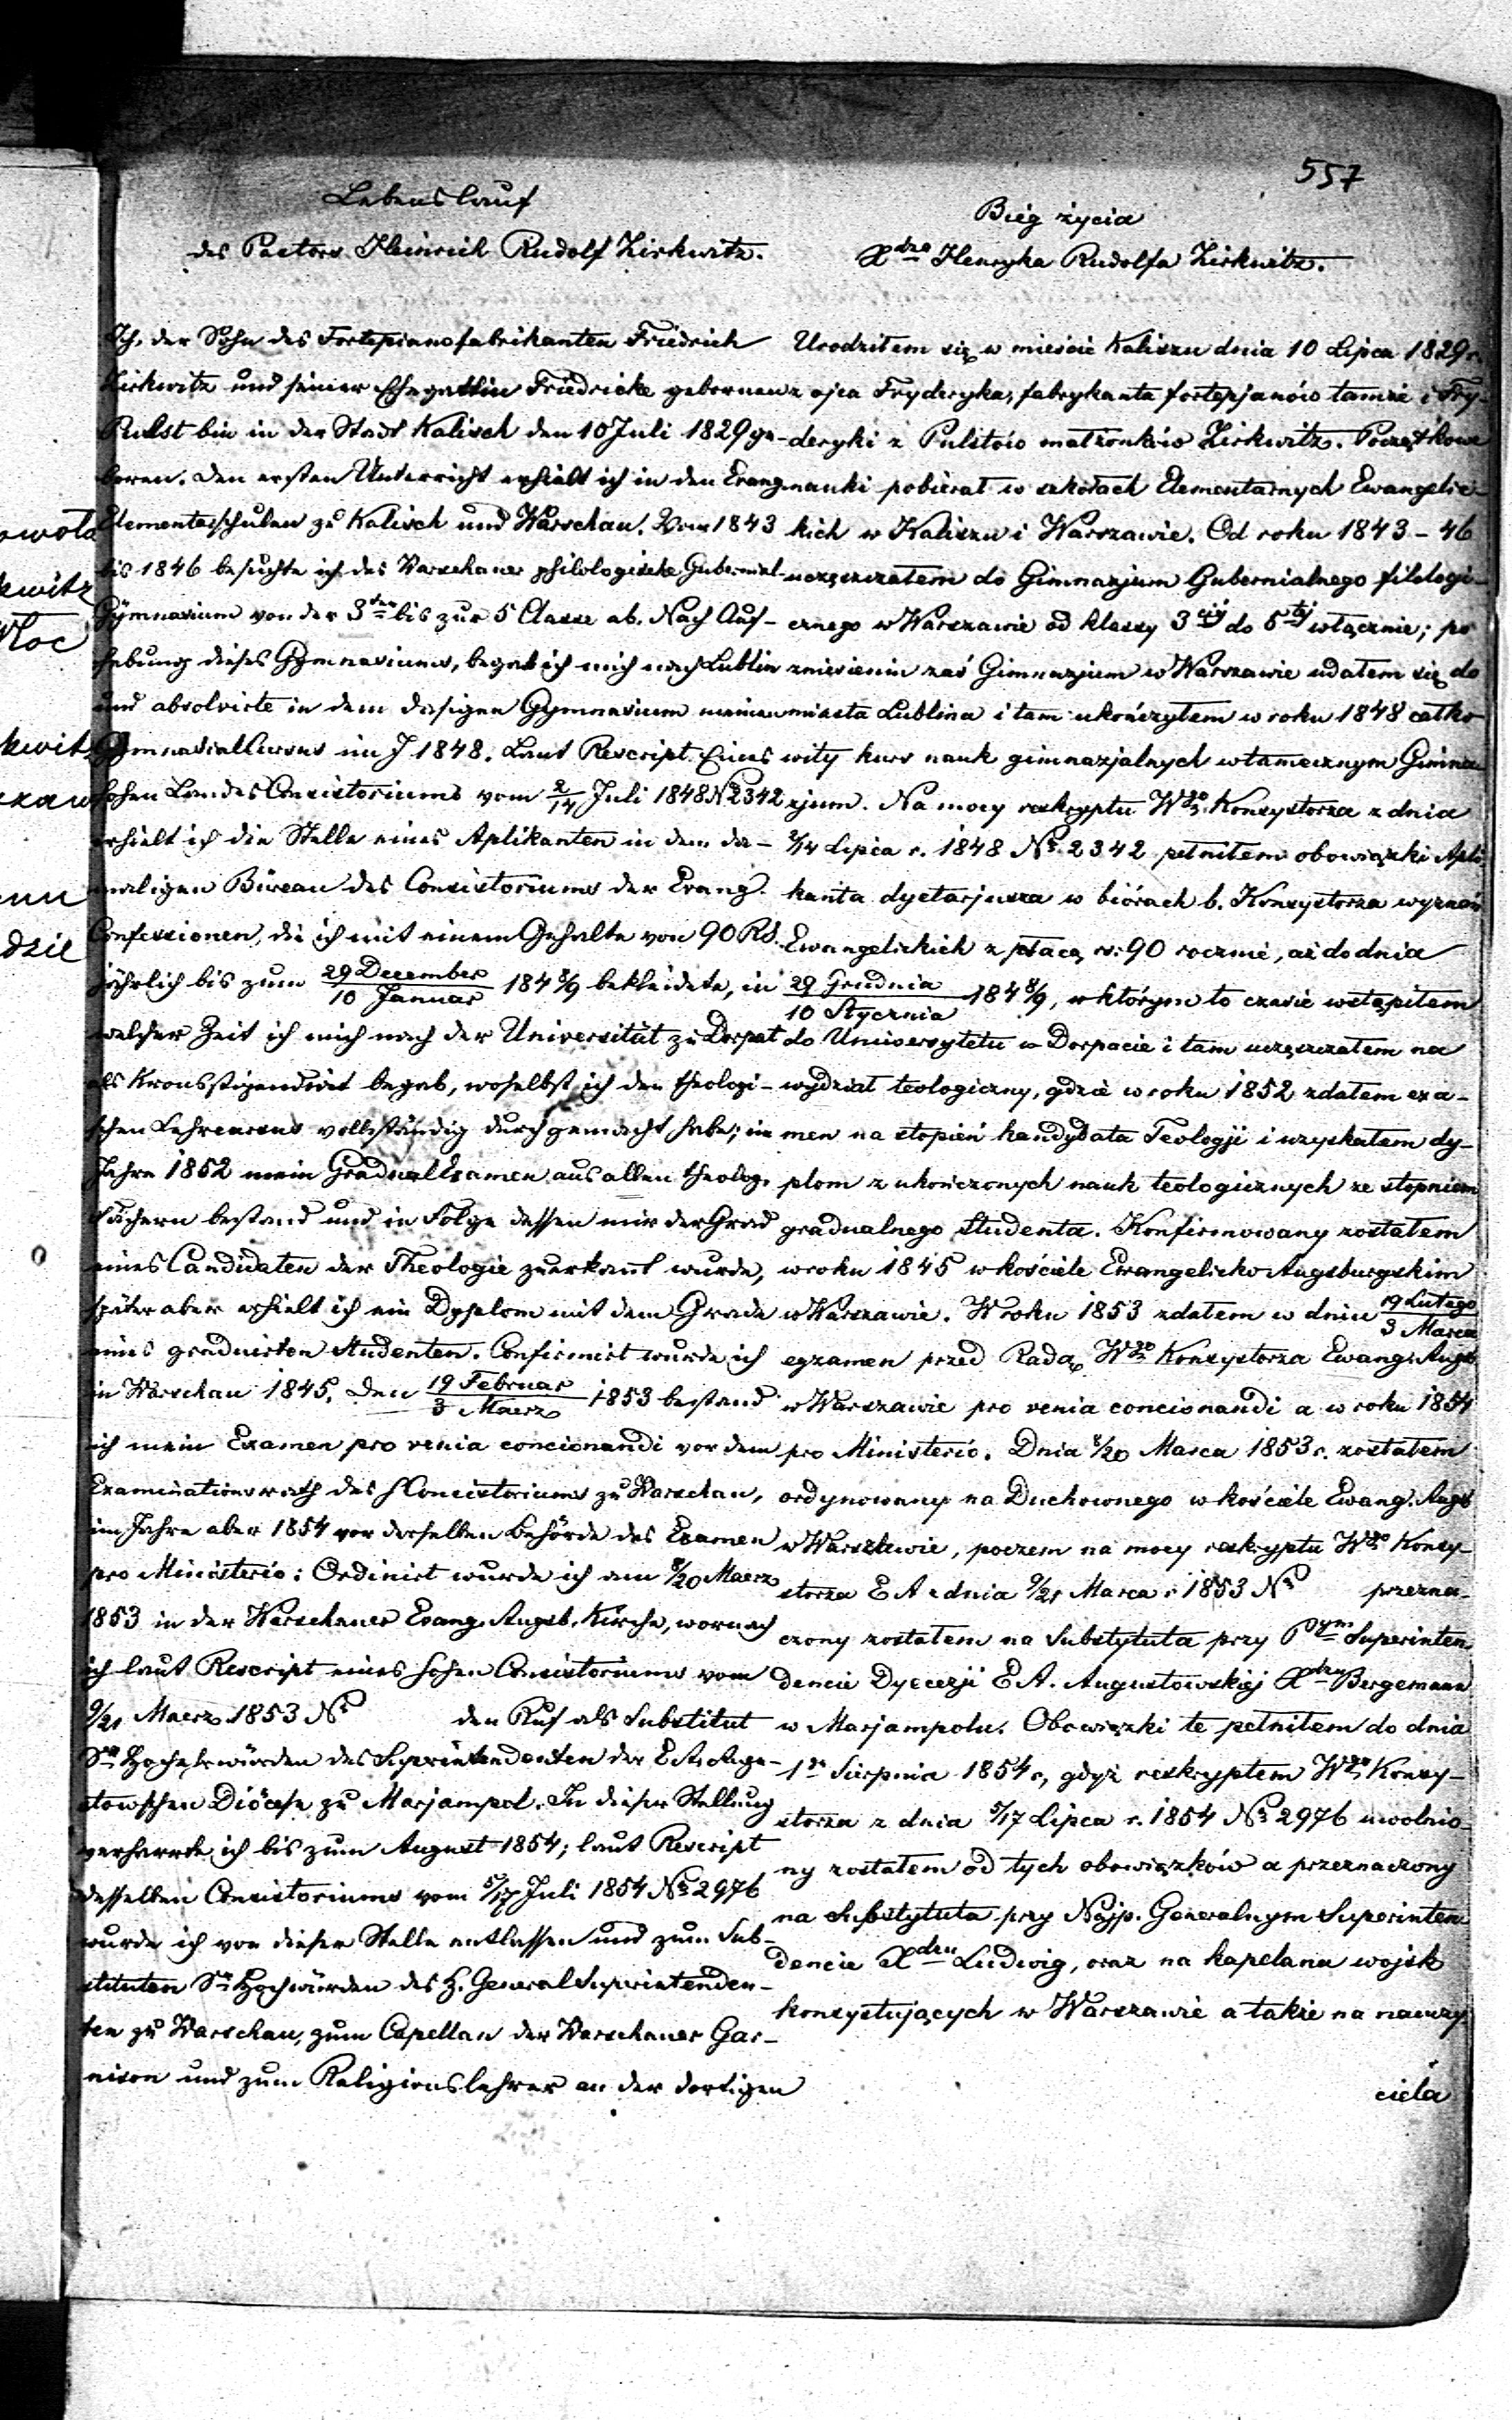 557
Lebenslauf
des Pastors Heinrich Rudolf Zirkwitz.
Ich, der Sohn des Fortepianofabrikanten Friedrich
Zirkwitz und seiner Ehegattin Friedricke gebornen
Pulst bin in der Stadt Kalisch den 10 Juli 1829 ge-
boren. Den ersten Unterricht erhielt ich in den Evang
Elementarschulen zu Kalisch und Warschau. Vom 1843
bis 1846 besuchte ich das Warschauer philologische Gubernial-
Gymnasium von der 3ten bis zur 5 Classe ab. Nach Auf-
hebung dieses Gymnasiums, begab ich mich nach Lublin
und absolvirte in dem dasigen Gymnasium meinen
Gymnasial Cursus im J 1848. Laut Rescript Eines
hohen Landes Consistoriums vom 2/14 Juli 1848 No 2342
erhielt ich die Stelle eines Aplikanten in dem da-
maligen Büreau des Consistoriums der Evang.
Confessionen, die ich mit einem Gehalte von 90 RS.
jährlich bis zum 29 December/10 Januar 1848/9 bekleidete, in
welcher Zeit ich mich nach der Universität zu Dorpat
als Kronsstipendiat begab, woselbst ich den theologi-
schen Lehrcursus vollständig durchgemacht habe; im
Jahre 1852 mein Gradual Examen aus allen theolog.
Fächern bestand und in Folge dessen mir der Grad
eines Candidaten der Theologie zuerkant wurde,
später aber erhielt ich ein Dyplom mit dem Grade
eines graduirten Studenten. Confirmirt wurde ich
in Warschau 1845. Den 19 Februar/3 Maerz 1853 bestand
ich mein Examen pro venia concionandi vor dem
Examinationsrath des Consistoriums zu Warschau,
im Jahre aber 1854 vor derselben Behörde das Examen
pro Ministerio: Ordinirt wurde ich am 8/20 Maerz
1853 in der Warschauer Evang. Augsb. Kirche, wornach
ich laut Rescript eines hohen Consistoriums vom
9/21 Maerz 1853 No den Ruf als Substitut
Sr Hochehrwürden des Superintendenten der E.A. Augu-
stowschen Diöcese zu Marjampol. In dieser Stellung
verharrte ich bis zum August 1854; laut Rescript
desselben Consistoriums vom 5/17 Juli 1854 No 2976
wurde ich von dieser Stelle entlassen und zum Sub-
stituten Sr Hochwürden des H. General Superintenden-
ten zu Warschau, zum Capellan der Warschauer Gar-
nison und zum Religionslehrer an der dortigen
Bieg życia
Xdza Henryka Rudolfa Zirkwitz.
Urodziłem się w mieście Kaliszu dnia 10 Lipca 1829 r.
z ojca Fryderyka, fabrykanta fortepjanów tamże i Fry-
deryki z Pulstów małżonków Zirkwitz. Początkowe
nauki pobierał w szkołach Elementarnych Ewangelic-
kich w Kaliszu i Warszawie. Od roku 1843 - 46
uczęszczałem do Gimnazjum Gubernialnego filologi-
cznego w Warszawie od klassy 3ciej do 5tej włącznie; po
zniesieniu zaś Gimnazjum w Warszawie udałem się do
miasta Lublina i tam ukończyłem w roku 1848 całko
wity kurs nauk gimnazjalnych w tamecznym Gimna
zjum. Na mocy reskryptu Wgo Konsystorza z dnia
2/14 Lipca r. 1848 No 2342 pełniłem obowiązki Apli
kanta dyetarjusza w biórach b. Konsystorza wyznań
Ewangelickich z płacą rs: 90 rocznie, aż do dnia
29 Grudnia/10 Stycznia 1848/9, w którym to czasie wstąpiłem
do Uniwersytetu w Dorpacie i tam uczęszczałem na
wydział teologiczny, gdzie w roku 1852 zdałem exa-
men na stopień kandydata Teologji i uzyskałem dy-
plom z ukończonych nauk teologicznych ze stopniem
gradualnego studenta. Konfirmowany zostałem
w roku 1845 w kościele Ewangelicko Augsburgskim
w Warszawie. W roku 1853 zdałem w dniu 19 Lutego/3 Marca
egzamen przed Radą Wgo Konsystorza Ewang. Augs
w Warszawie pro venia concionandi a w roku 1854
pro Ministerio. Dnia 8/20 Marca 1853 r. zostałem
ordynowany na Duchownego w kościele Ewang. Augs
w Warszawie, poczem na mocy reskryptu Wgo Konsy-
storza E A z dnia 9/21 Marca r 1853 No przezna-
czony zostałem na Substytuta przy Pym Superinten
dencie Dyecezji E.A. Augustowskiej Xdzu Bergemann
w Marjampolu. Obowiązki te pełniłem do dnia
1go Sierpnia 1854 r, gdyż reskryptem Wgo Konsy-
storza z dnia 5/17 Lipca r. 1854 No 2976 uwolnio-
ny zostałem od tych obowiązków a przeznaczony
na Substytuta przy Najp. Generalnym Superinten
dencie Xdzu Ludwig, oraz na kapelana wojsk
konsystujących w Warszawie a także na nauczy
ciela